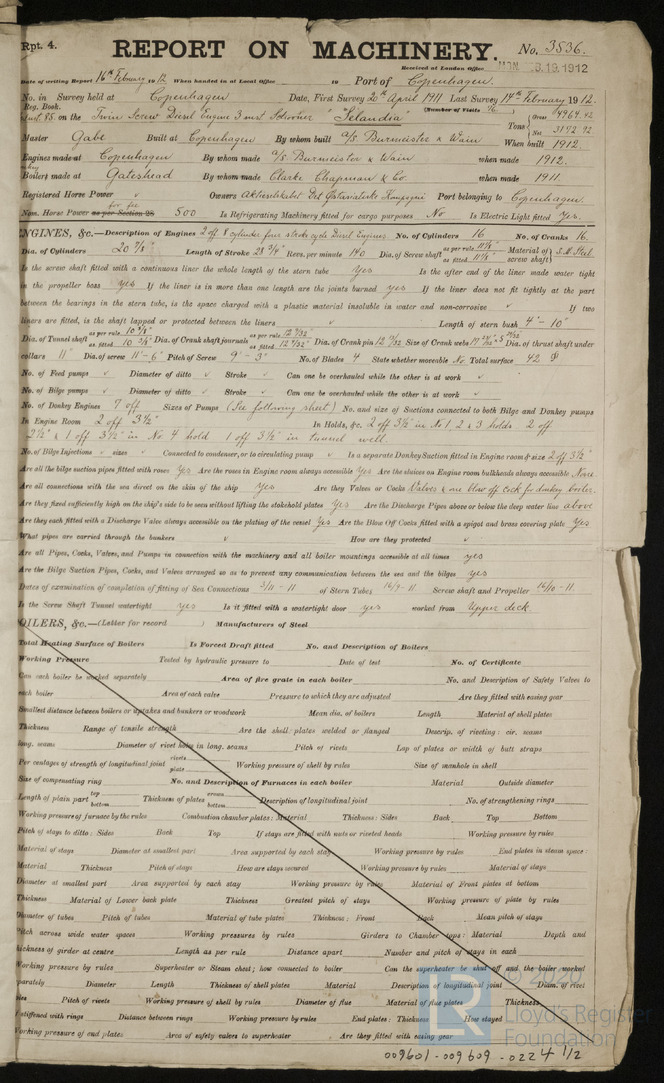 Rpt. 4.
REPORT ON MACHINERY.
No. 3536.
Received at London Office
MON. FEB. 19. 1912
Date of writing Report 16th February 1912 When handed in at Local Office 19 Port of Copenhagen.
No. in Survey held at Copenhagen Date, First Survey 20th April 1911 Last Survey 14th February 1912.
Reg. Book.
(Number of Visits 76)
85 on the Twin Screw Diesel Engine 3 mast Schooner "Selandia" Tons Gross 4964.42
Net 3172.92
Master Gabe Built at Copenhagen By whom built A/S. Burmeister & Wain When built 1912.
Engines made at Copenhagen By whom made A/S. Burmeister & Wain when made 1912.
Boilers made at Gateshead By whom made Clarke Chapman & Co. when made 1911.
Registered Horse Power Owners Aktieselskabet Det Østasiatiske Kompagni Port belonging to Copenhagen.
Nom. Horse Power as per Section 28 500 Is Refrigerating Machinery fitted for cargo purposes No Is Electric Light fitted Yes.
ENGINES, &c.—Description of Engines 2 off 8 cylinder four stroke cycle Diesel Engines No. of Cylinders 16 No. of Cranks 16.
Dia. of Cylinders 20 7/8" Length of Stroke 28 3/4" Revs. per minute 140 Dia. of Screw shaft as per rule 11 1/4" as fitted 11 1/2" Material of screw shaft S.M. Steel.
Is the screw shaft fitted with a continuous liner the whole length of the stern tube Yes Is the after end of the liner made water tight
in the propeller boss yes If the liner is in more than one length are the joints burned yes If the liner does not fit tightly at the part
between the bearings in the stern tube, is the space charged with a plastic material insoluble in water and non-corrosive If two
liners are fitted, is the shaft lapped or protected between the liners Length of stern bush 4'-10"
Dia. of Tunnel shaft as per rule as fitted Dia. of Crank shaft journals as per rule as fitted Dia. of Crank pin Size of Crank webs Dia. of thrust shaft under
collars 11" Dia. of screw 11'-6" Pitch of Screw 9'-3" No. of Blades 4 State whether moveable No Total surface 42
No. of Feed pumps Diameter of ditto Stroke Can one be overhauled while the other is at work
No. of Bilge pumps Diameter of ditto Stroke Can one be overhauled while the other is at work
No. of Donkey Engines 7 off Sizes of Pumps (See following sheet) No. and size of Suctions connected to both Bilge and Donkey pumps
In Engine Room 2 off 3 1/2" In Holds, &c. 2 off 3 1/2 in No 1, 2 & 3 holds 2 off
2 1/2" & 1 off 3 1/2" in No 4 hold 1 off 3 1/2" in tunnel well.
No. of Bilge Injections sizes Connected to condenser, or to circulating pump Is a separate Donkey Suction fitted in Engine room & size 2 off 3 1/2"
Are all the bilge suction pipes fitted with roses Yes Are the roses in Engine room always accessible Yes Are the sluices on Engine room bulkheads always accessible None
Are all connections with the sea direct on the skin of the ship Yes Are they Valves or Cocks Valves & one blow off cock for donkey boiler.
Are they fixed sufficiently high on the ship's side to be seen without lifting the stokehold plates Yes Are the Discharge Pipes above or below the deep water line above
Are they each fitted with a Discharge Valve always accessible on the plating of the vessel Yes Are the Blow Off Cocks fitted with a spigot and brass covering plate Yes
What pipes are carried through the bunkers How are they protected
Are all Pipes, Cocks, Valves, and Pumps in connection with the machinery and all boiler mountings accessible at all times yes
Are the Bilge Suction Pipes, Cocks, and Valves arranged so as to prevent any communication between the sea and the bilges yes
Dates of examination of completion of fitting of Sea Connections 3/11-11 of Stern Tubes 16/9-11 Screw shaft and Propeller 16/10-11
Is the Screw Shaft Tunnel watertight yes Is it fitted with a watertight door yes worked from Upper deck
OILERS, &c.—(Letter for record ) Manufacturers of Steel
Total Heating Surface of Boilers Is Forced Draft fitted No. and Description of Boilers
Working Pressure Tested by hydraulic pressure to Date of test No. of Certificate
Can each boiler be worked separately Area of fire grate in each boiler No. and Description of Safety Valves to
each boiler Area of each valve Pressure to which they are adjusted Are they fitted with easing gear
Smallest distance between boilers or uptakes and bunkers or woodwork Mean dia. of boilers Length Material of shell plates
Thickness Range of tensile strength Are the shell plates welded or flanged Descrip. of riveting: cir. seams
long. seams Diameter of rivet holes in long. seams Pitch of rivets Lap of plates or width of butt straps
Per centages of strength of longitudinal joint rivets plate Working pressure of shell by rules Size of manhole in shell
Size of compensating ring No. and Description of Furnaces in each boiler Material Outside diameter
Length of plain part top bottom Thickness of plates crown bottom Description of longitudinal joint No. of strengthening rings
Working pressure of furnace by the rules Combustion chamber plates: Material Thickness: Sides Back Top Bottom
Pitch of stays to ditto: Sides Back Top If stays are fitted with nuts or riveted heads Working pressure by rules
Material of stays Diameter at smallest part Area supported by each stay Working pressure by rules End plates in steam space:
Material Thickness Pitch of stays How are stays secured Working pressure by rules Material of stays
Diameter at smallest part Area supported by each stay Working pressure by rules Material of Front plates at bottom
Thickness Material of Lower back plate Thickness Greatest pitch of stays Working pressure of plate by rules
Diameter of tubes Pitch of tubes Material of tube plates Thickness: Front Back Mean pitch of stays
Pitch across wide water spaces Working pressures by rules Girders to Chamber tops: Material Depth and
thickness of girder at centre Length as per rule Distance apart Number and pitch of stays in each
Working pressure by rules Superheater or Steam chest; how connected to boiler Can the superheater be shut off and the boiler worked
separately Diameter Length Thickness of shell plates Material Description of longitudinal joint Diam. of rivet
holes Pitch of rivets Working pressure of shell by rules Diameter of flue Material of flue plates Thickness
If stiffened with rings Distance between rings Working pressure by rules End plates: Thickness How stayed
Working pressure of end plates Area of safety valves to superheater Are they fitted with easing gear
© 2020
LR
Lloyd's Register
Foundation
009601-009609-0224 1/2